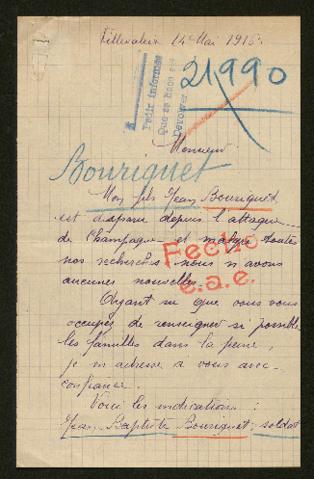 14 Mai 1915
Pedir informes
Que se haga
Devolver
21990
Monsieur
Bouriguet
Mon fils Jean Bouriguet,
est disparu depuis l'attaque
de Champagne et malgré toutes
nos recherches nous n avons
aucunes nouvelles.
Fecho
e.a.e.
Ayant su que vous vous
occupés de renseigner si possible
les familles dans la peine,
je m adresse a vous avec
confiance.
Voici les indications :
Jean Baptiste Bouriguet, soldat